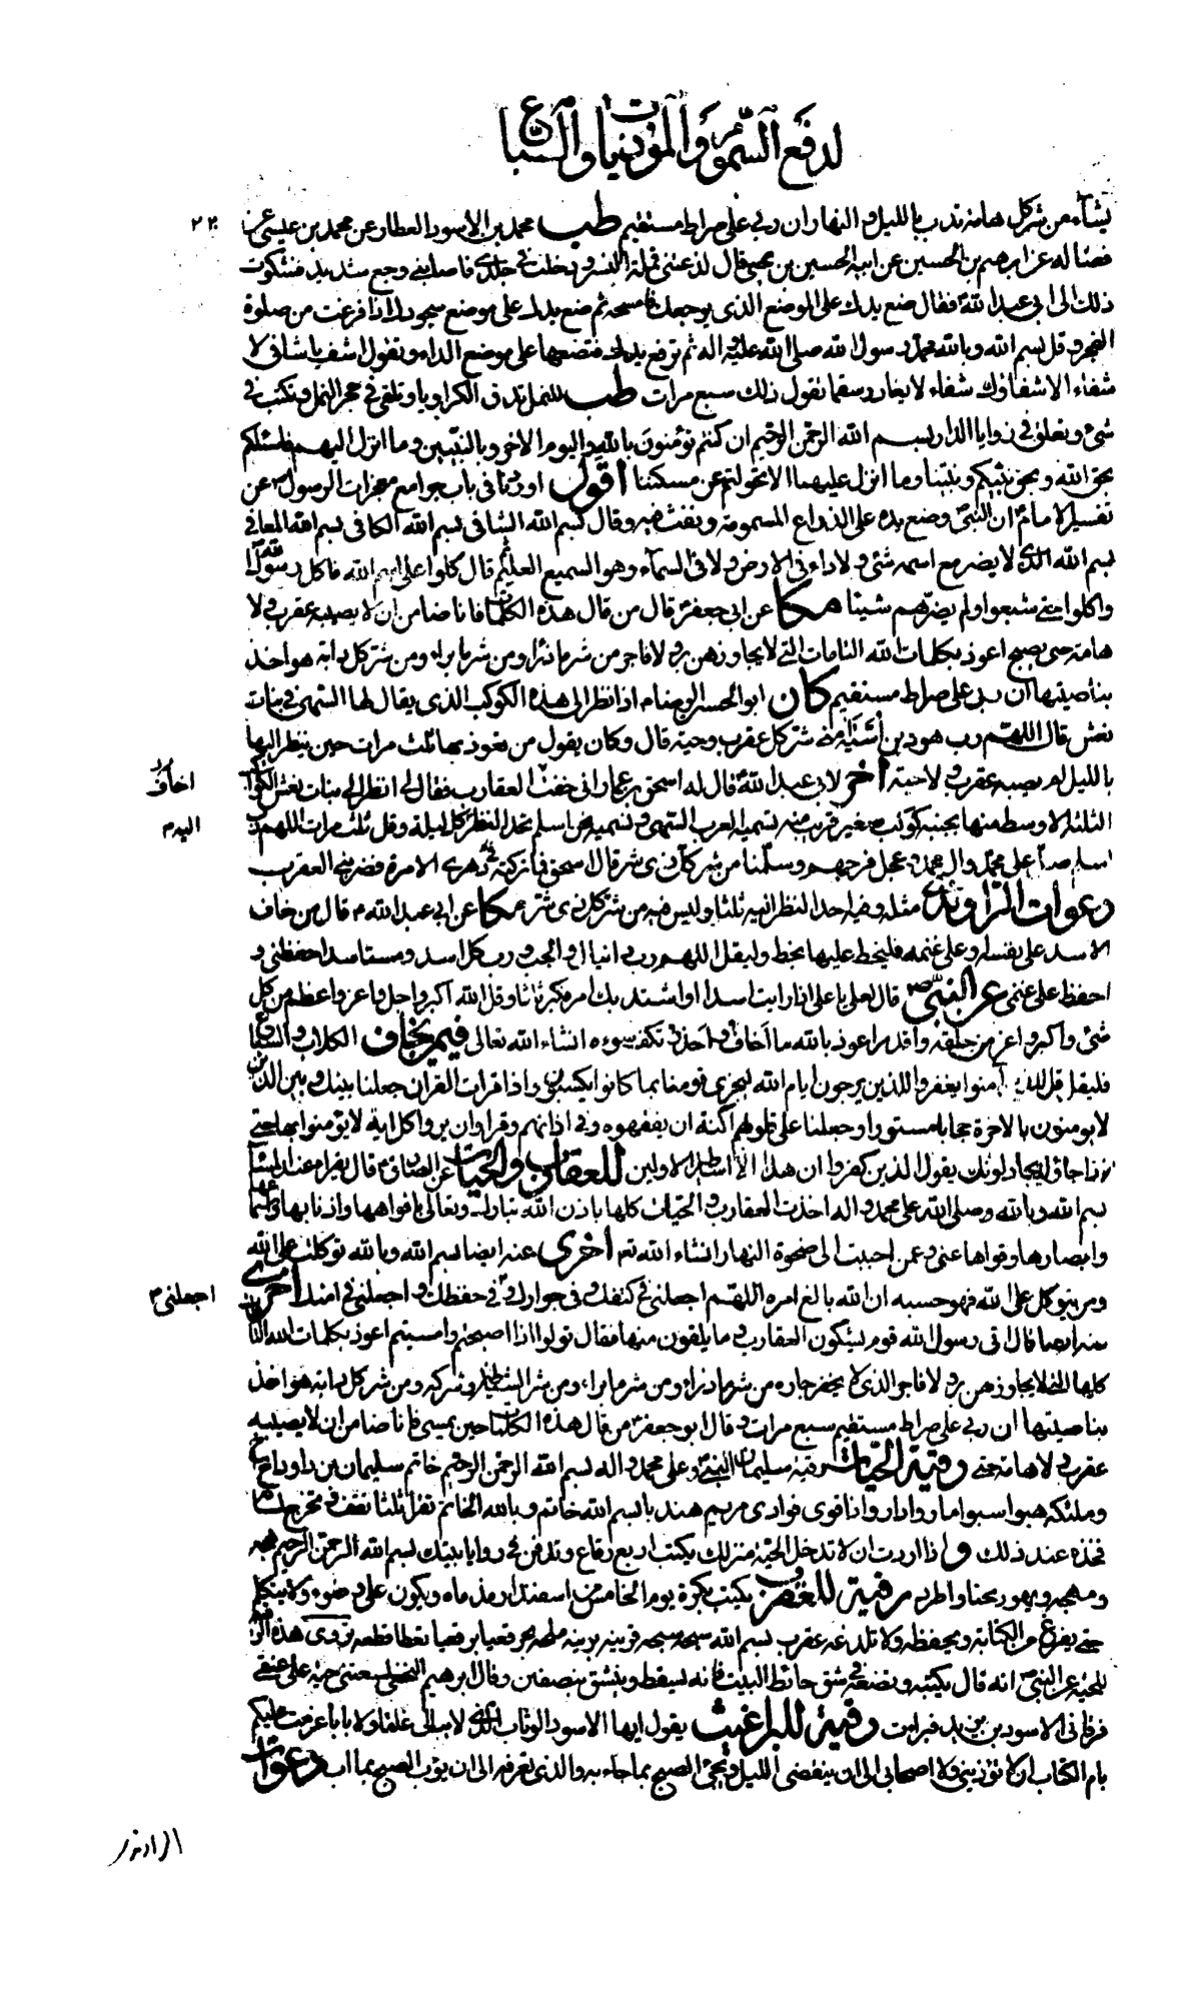 لدفع السموم والموذيات والسباع
يشآء من شر كل هامة تدب بالليل والنهار ان ربي على صراط مستقيم طب محمد بن الاسود العطار عن محمد بن عيسى عن
فضاله عن ابرهيم بن الحسين عن ابيه الحسين بن يحيى قال لدغتنى قملة النسر ودخلت فى جلدى فاصابنى وجع شديد فشكوت
ذلك الى ابى عبد الله فقال ضع يدك على الموضع الذى يوجعك فامسحه ثم ضع يدك على موضع سجودك اذا فرغت من صلوة
الفجر وقل بسم الله وبالله محمد رسول الله صلى الله عليه واله ثم ترفع يدك فتضعها على موضع الداء وتقول اشف يا شافى لا
شفاء الا شفاؤك شفاء لا يغادر سقما تقول ذلك سبع مرات طب للنمل تدق الكراويا وتلقى فى حجر النمل وتكتب فى
شئ وتعلق فى زوايا الدار بسم الله الرحمن الرحيم ان كنتم تؤمنون بالله واليوم الاخر وبالنبيين وما انزل اليهم فاسئلكم
بحق الله وبحق نبيكم ونبينا وما انزل عليهما الا تحولتم عن مسكننا اقول اوردنا فى باب جوامع معجزات الرسول ص عن
تفسير الامام ان النبى وضع يده على الذراع المسمومة ونفث فيه وقال بسم الله الشافى بسم الله الكافى بسم الله المعافى
بسم الله الذى لا يضر مع اسمه شئ ولا داء فى الارض ولا فى السمآء وهو السميع العليم ثم قال كلوا على اسم الله فاكل رسول الله
واكلوا حتى شبعوا ولم يضرهم شيئا مكا عن ابى جعفر قال من قال هذه الكلمات فانا ضامن ان لا يصيبه عقرب ولا
هامة حتى يصبح اعوذ بكلمات الله التامات التى لا يجاوزهن بر ولا فاجر من شر ما ذرا ومن شر ما برا ومن شر كل دابة هو اخذ
بناصيتها ان ربى على صراط مستقيم كان ابو الحسن الرضا م اذا نظر الى هذه الكوكب الذى يقال لها السهى فى بنات
نعش قال اللهم رب هود بن أسية امنى شر كل عقرب وحية قال وكان يقول من تعوذ بها ثلث مرات حين ينظر اليها
بالليل لم يصبه عقرب ولا حية آخر لابى عبد الله قال له اسحق بن عمار انى خفت العقارب فقال لى انظر الى بنات نعش الكواكب
اخاف
الثلثة الاوسط منها بجنبه كوكب صغير قريب منه تسميه العرب السهى ونسميه نحن اسلم نحد النظر كل ليلة وقل ثلث مرات اللهم رب
اليه م
اسلم صل على محمد وال محمد وعجل فرجهم وسلمنا من شر كل ذى شر قال اسحق فما تركته فى دهرى الا مرة فضربنى العقرب
دعوات الراوندى مثله وفيه احد النظر اليه ثلثا وليس فيه من شر كل ذى شر مكا عن ابى عبد الله م قال من خاف
الاسد على نفسه وعلى غنمه فليخط عليها بخط وليقل اللهم رب دانيال والجب ورب كل اسد ومستاسد احفظنى و
احفظ على غنمى عن النبى ص قال لعلى يا على اذا رايت اسدا او اشتد بك امر فكبر ثلثا وقل الله اكبر واجل واعز واعظم من كل
شئ واكبر واعز من خلقه واقدر اعوذ بالله ما اخاف واحذر تكف سوءه انشاء الله تعالى فيمن يخاف الكلاب والسباع
فليقل قل للذين آمنوا يغفروا للذين يرجون ايام الله ليجزى قوما بما كانوا يكسبون واذا قرات القران جعلنا بينك وبين الذين
لا يومنون بالاخرة حجابا مستورا وجعلنا على قلوبهم اكنة ان يفقهوه وفى اذانهم وقرا وان يروا كل اية لا يؤمنوا بها حتى
اذا جاؤك يجادلونك يقول الذين كفروا ان هذا الا اساطير الاولين للعقارب والحيات عن الصادق م قال يقرا عند المساء
بسم الله وبالله وصلى الله على محمد واله اخذت العقارب والحيات كلها باذن الله تبارك وتعالى بافواهها واذنابها واسماعها
وابصارها وقواها عنى وعمن احببت الى ضحوة النهار انشاء الله تعم اخرى عنه ايضا بسم الله وبالله توكلت على الله
ومن يتوكل على الله فهو حسبه ان الله بالغ امره اللهم اجعلنى فى كنفك وفى جوارك وفى حفظك واجعلنى فى امنك اخرى
اجعلنى م
عنه ايضا قال اتى رسول الله قوم يشكون العقارب وما يلقون منها فقال قولوا اذا اصبحتم وامسيتم اعوذ بكلمات الله التامات
كلها التى لا يجاوزهن بر ولا فاجر الذى لا يخفر جاره من شر ما ذرا ومن شر ما برا ومن شر الشيطان وشركه ومن شر كل دابة هو اخذ
بناصيتها ان ربى على صراط مستقيم سبع مرات وقال ابو جعفر من قال هذه الكلمات حين يمسى فانا ضامن ان لا يصيبه
عقرب ولا هامة حتى رقية الحيات رقية سليمان النبى وعلى محمد واله بسم الله الرحمن الرحيم خاتم سليمان بن داود
وملئكة واذا اردت ان لا تدخل الحية منزلك يكتب اربع رقاع وتدفن فى زوايا بيتك بسم الله الرحمن الرحيم
رقية للعقرب يكتب بكرة يوم الخامس من اسفندارمذ ماه ويكون على وضوء ولا يتكلم
حتى يفرغ من الكتابة ويحفظه ولا تلدغه عقرب بسم الله
للحية عن النبى انه قال يكتبه وتضعه فى شق حائط البيت فانه يسقط وينشق بنصفين وقال ابرهيم النخعى لسعتنى حية على عنقى
فرقانى الاسود بن يزيد فبرات رقية للبراغيث يقول ايها الاسود الوثاب الذى لا يبالى غلقا ولا بابا عزمت عليكم
بام الكتاب ان لا تؤذينى ولا اصحابى الى ان ينقضى الليل ويجئ الصبح بما جاء به والذى تعرفه الى ان يؤب الصبح بما اب دعوات
الراوندى